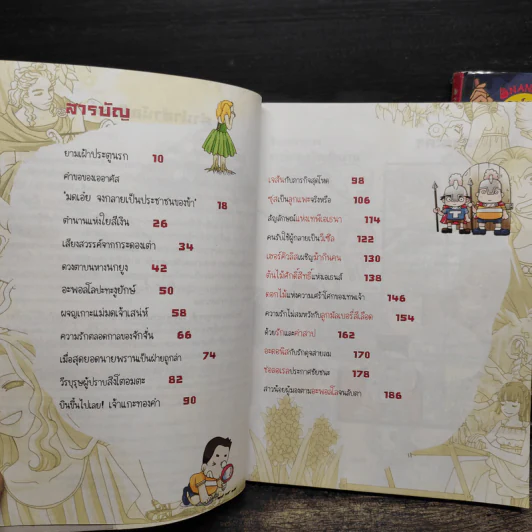 สารบัญ
ยามเฝ้าประตูนรก 10
คำขอของเออาคัส
"มดเอ๋ย จงกลายเป็นประชาชนของข้า" 18
ตำนานแห่งใยสีเงิน 26
เสียงสวรรค์จากกระดองเต่า 34
ดวงตาบนหางนกยูง 42
อะพอลโลปะทะงูยักษ์ 50
ผจญเกาะแม่มดเจ้าเสน่ห์ 58
ความรักตลอดกาลของจักจั่น 66
เมื่อสุดยอดนายพรานเป็นฝ่ายถูกล่า 74
วีรบุรุษผู้ปราบสิงโตอมตะ 82
บินขึ้นไปเลย! เจ้าแกะทองคำ 90
เจสันกับภารกิจสุดโหด 98
ซุสเป็นลูกแพะจริงหรือ 106
สัญลักษณ์แห่งเทพีเอเธนา 114
คนรับใช้ผู้กลายเป็นวีเซิล 122
เฮอร์คิวลิสเผชิญม้ากินคน 130
ต้นไม้ศักดิ์สิทธิ์แห่งเอเธนส์ 138
ดอกไม้แห่งความเศร้าโศกของเทพเจ้า 146
ความรักไม่สมหวังกับลูกมัลเบอร์รีสีเลือด 154
ด้วยรักและคำสาป 162
อะดอนิสกับรักดุจสายลม 170
ช่อลอเรลประกาศชัยชนะ 178
สาวน้อยผู้มองตามอะพอลโลจนลับตา 186